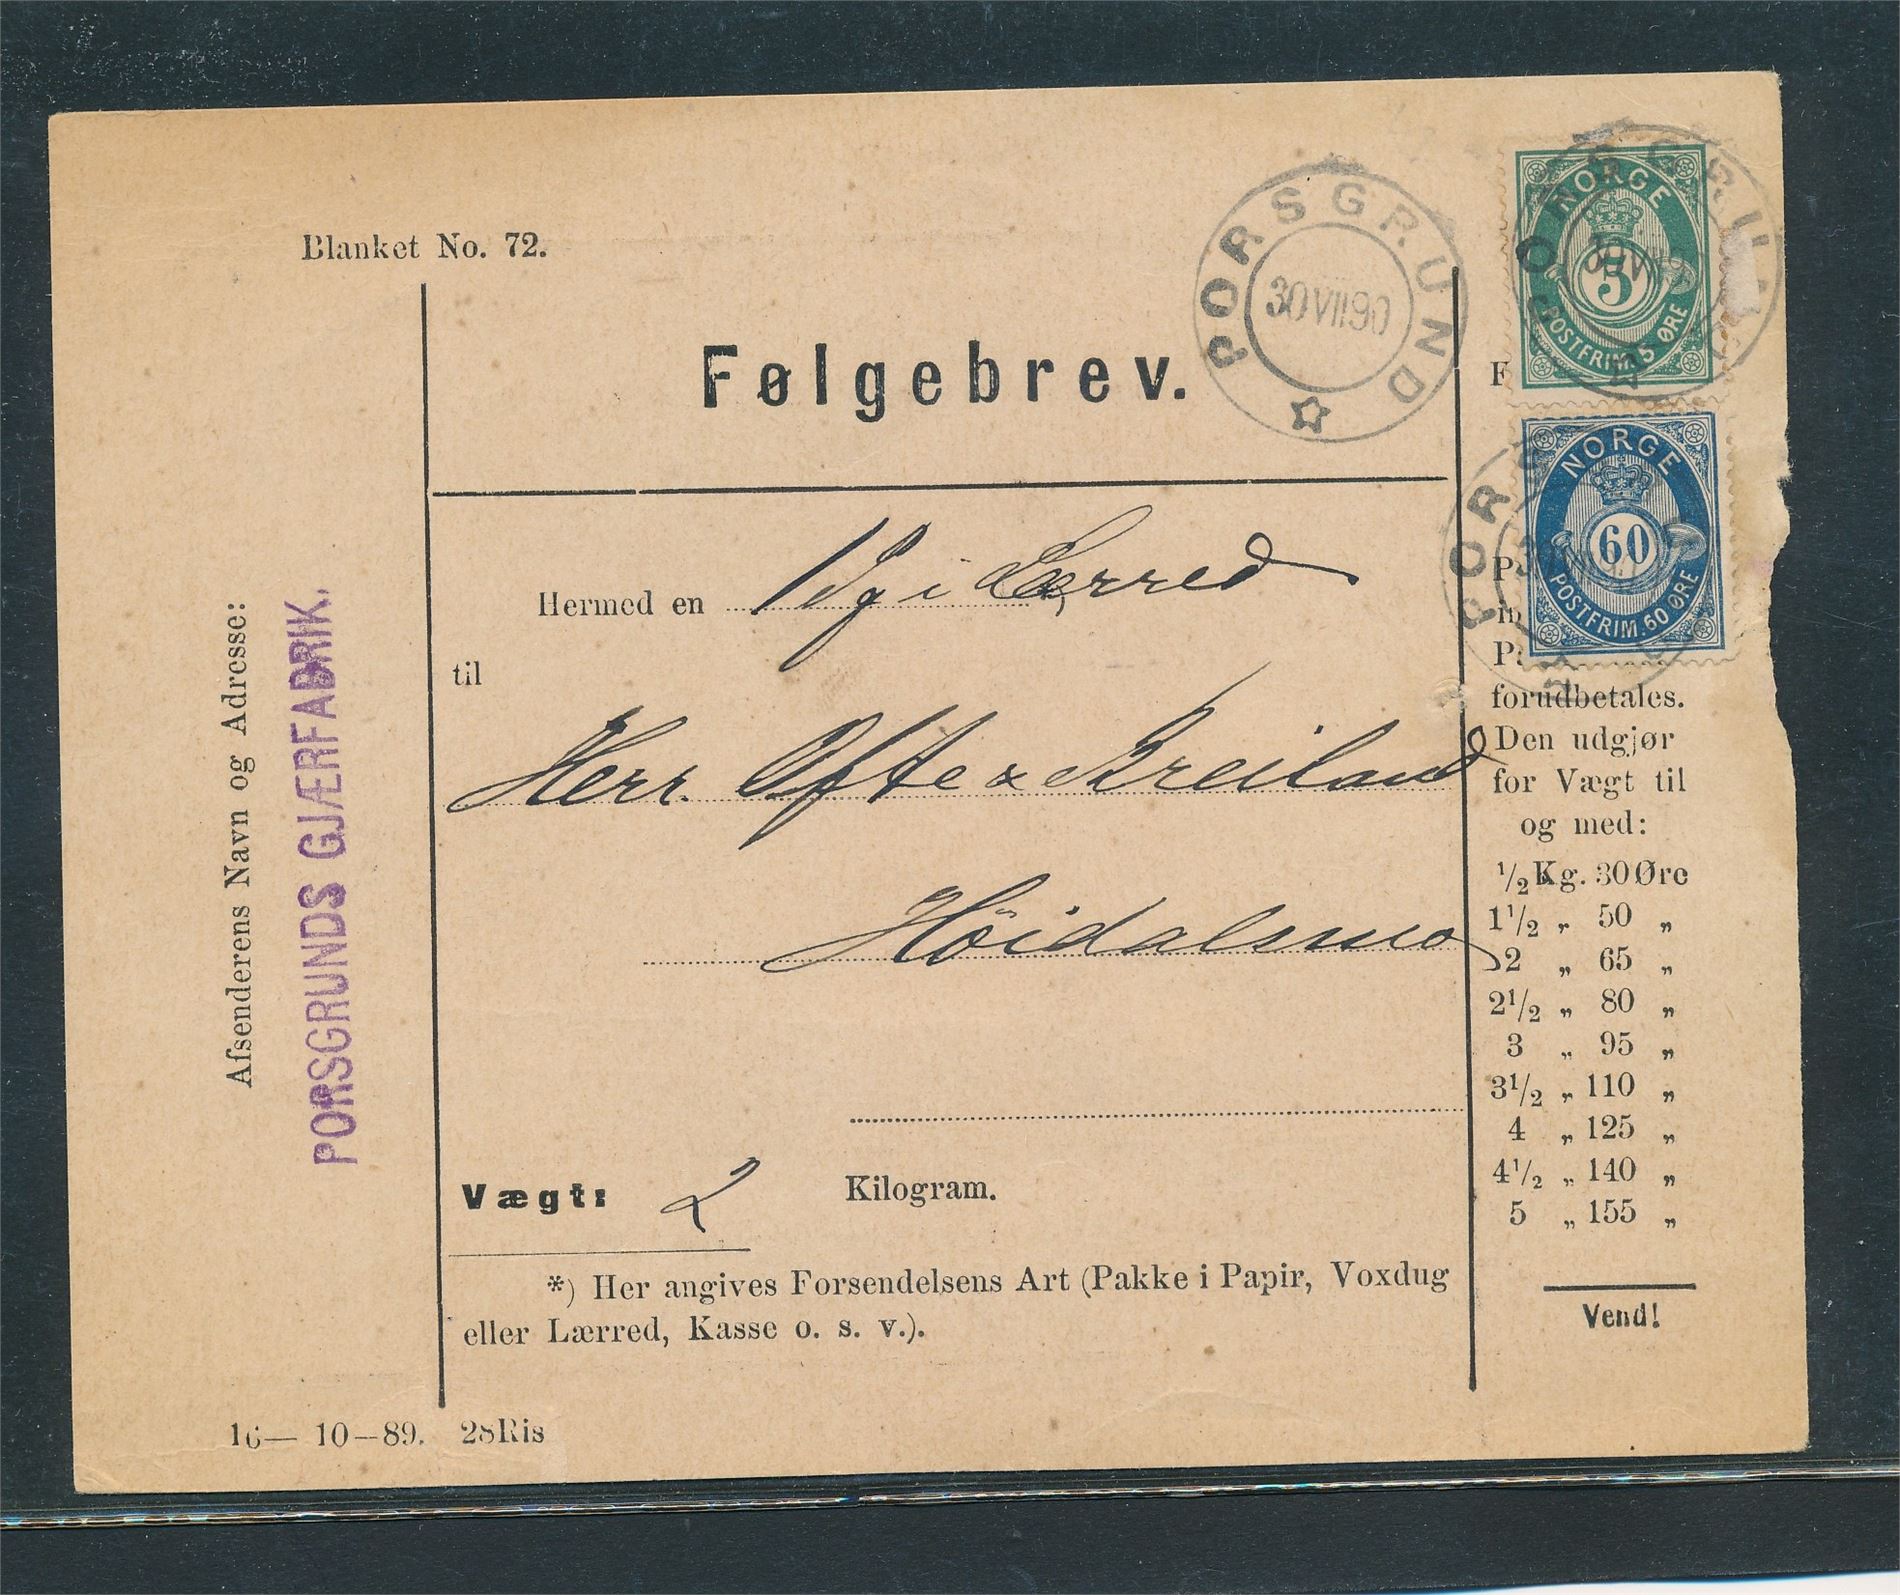 Blanket No. 72.
Følgebrev.
PORSGRUND
30 VII 90
NORGE
5
POSTFRIM. 5 ØRE
NORGE
60
POSTFRIM. 60 ØRE
Afsenderens Navn og Adresse:
PORSGRUNDS GJÆRFABRIK.
Hermed en i Lærred
til
Herr. Ofte & Breiland
Höidalsmo
Vægt: 2 Kilogram.
*) Her angives Forsendelsens Art (Pakke i Papir, Voxdug
eller Lærred, Kasse o. s. v.).
16— 10—89. 28 Ris
forudbetales.
Den udgjør
for Vægt til
og med:
1/2 Kg. 30 Øre
1 1/2 „ 50 „
2 „ 65 „
2 1/2 „ 80 „
3 „ 95 „
3 1/2 „ 110 „
4 „ 125 „
4 1/2 „ 140 „
5 „ 155 „
Vend!